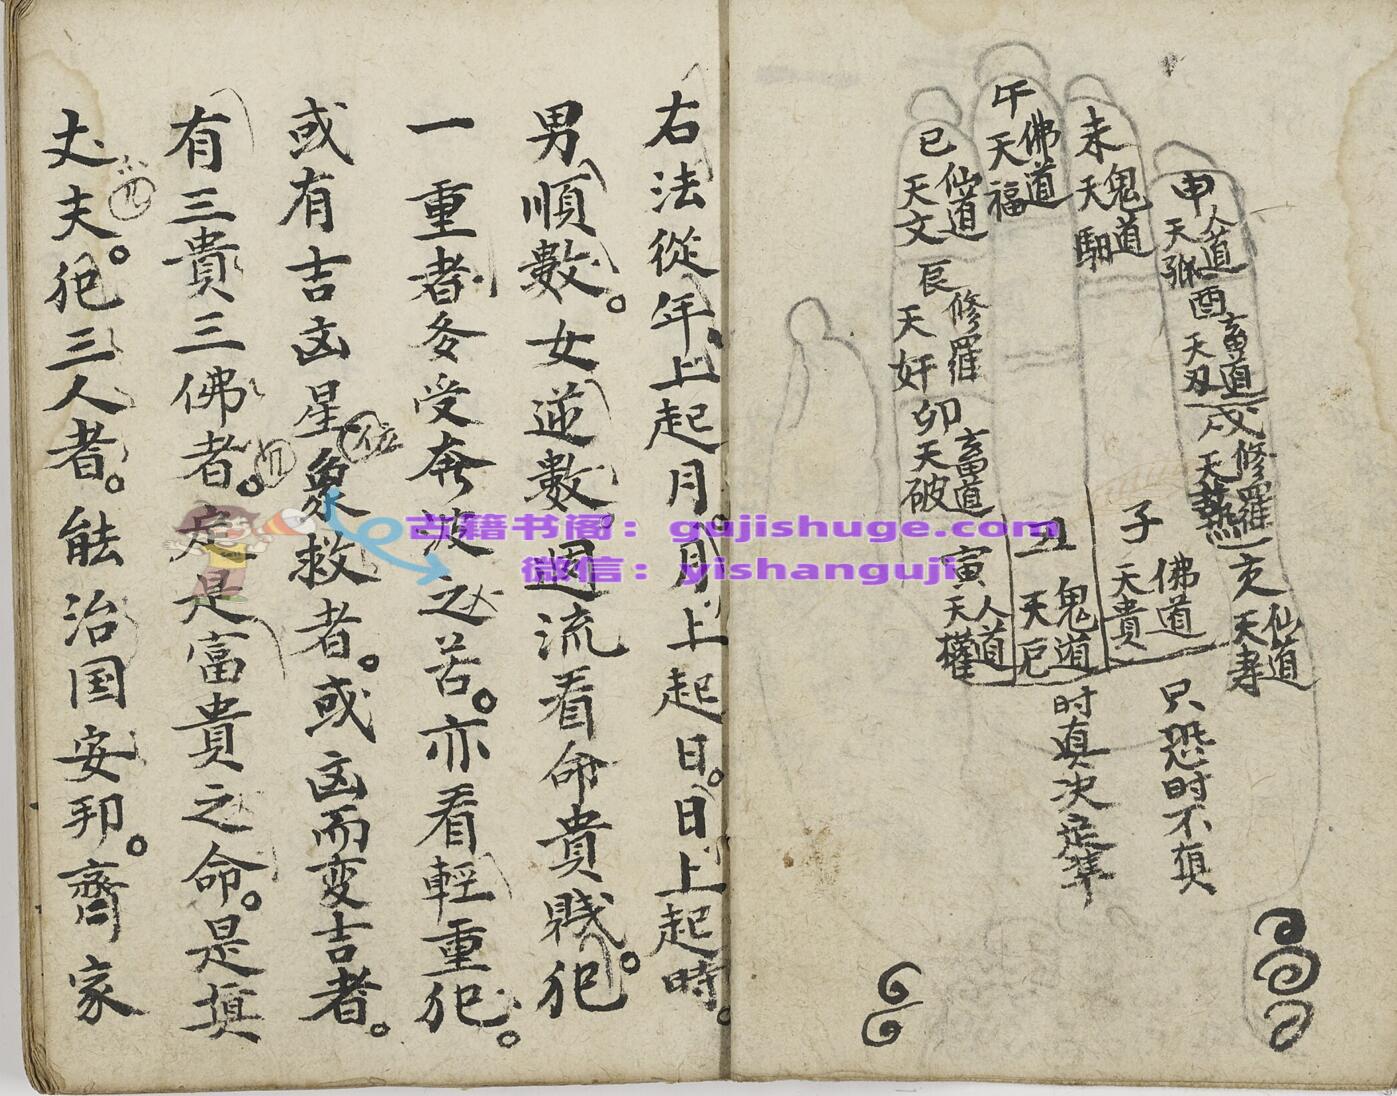 申
人道
天弧
酉
畜道
天刃
戌
修羅
天藝
亥
仙道
天寿
未
鬼道
天馹
午
佛道
天福
巳
仙道
天文
辰
修羅
天奸
卯
畜道
天破
寅
人道
天權
丑
鬼道
天厄
子
佛道
天貴
只恐时不真
时真决定準
右法從年上起月。月上起日。日上起時。
男順數。女逆數。週流看命貴賤。犯
一重者多受奔波之苦。亦看輕重犯。
或有吉凶星象救者。或凶而变吉者。
位
有三貴三佛者。定是富貴之命。是真
丈夫。犯三人者。能治国安邦。齊家
古籍书阁：gujishuge.com
微信：yishanguji